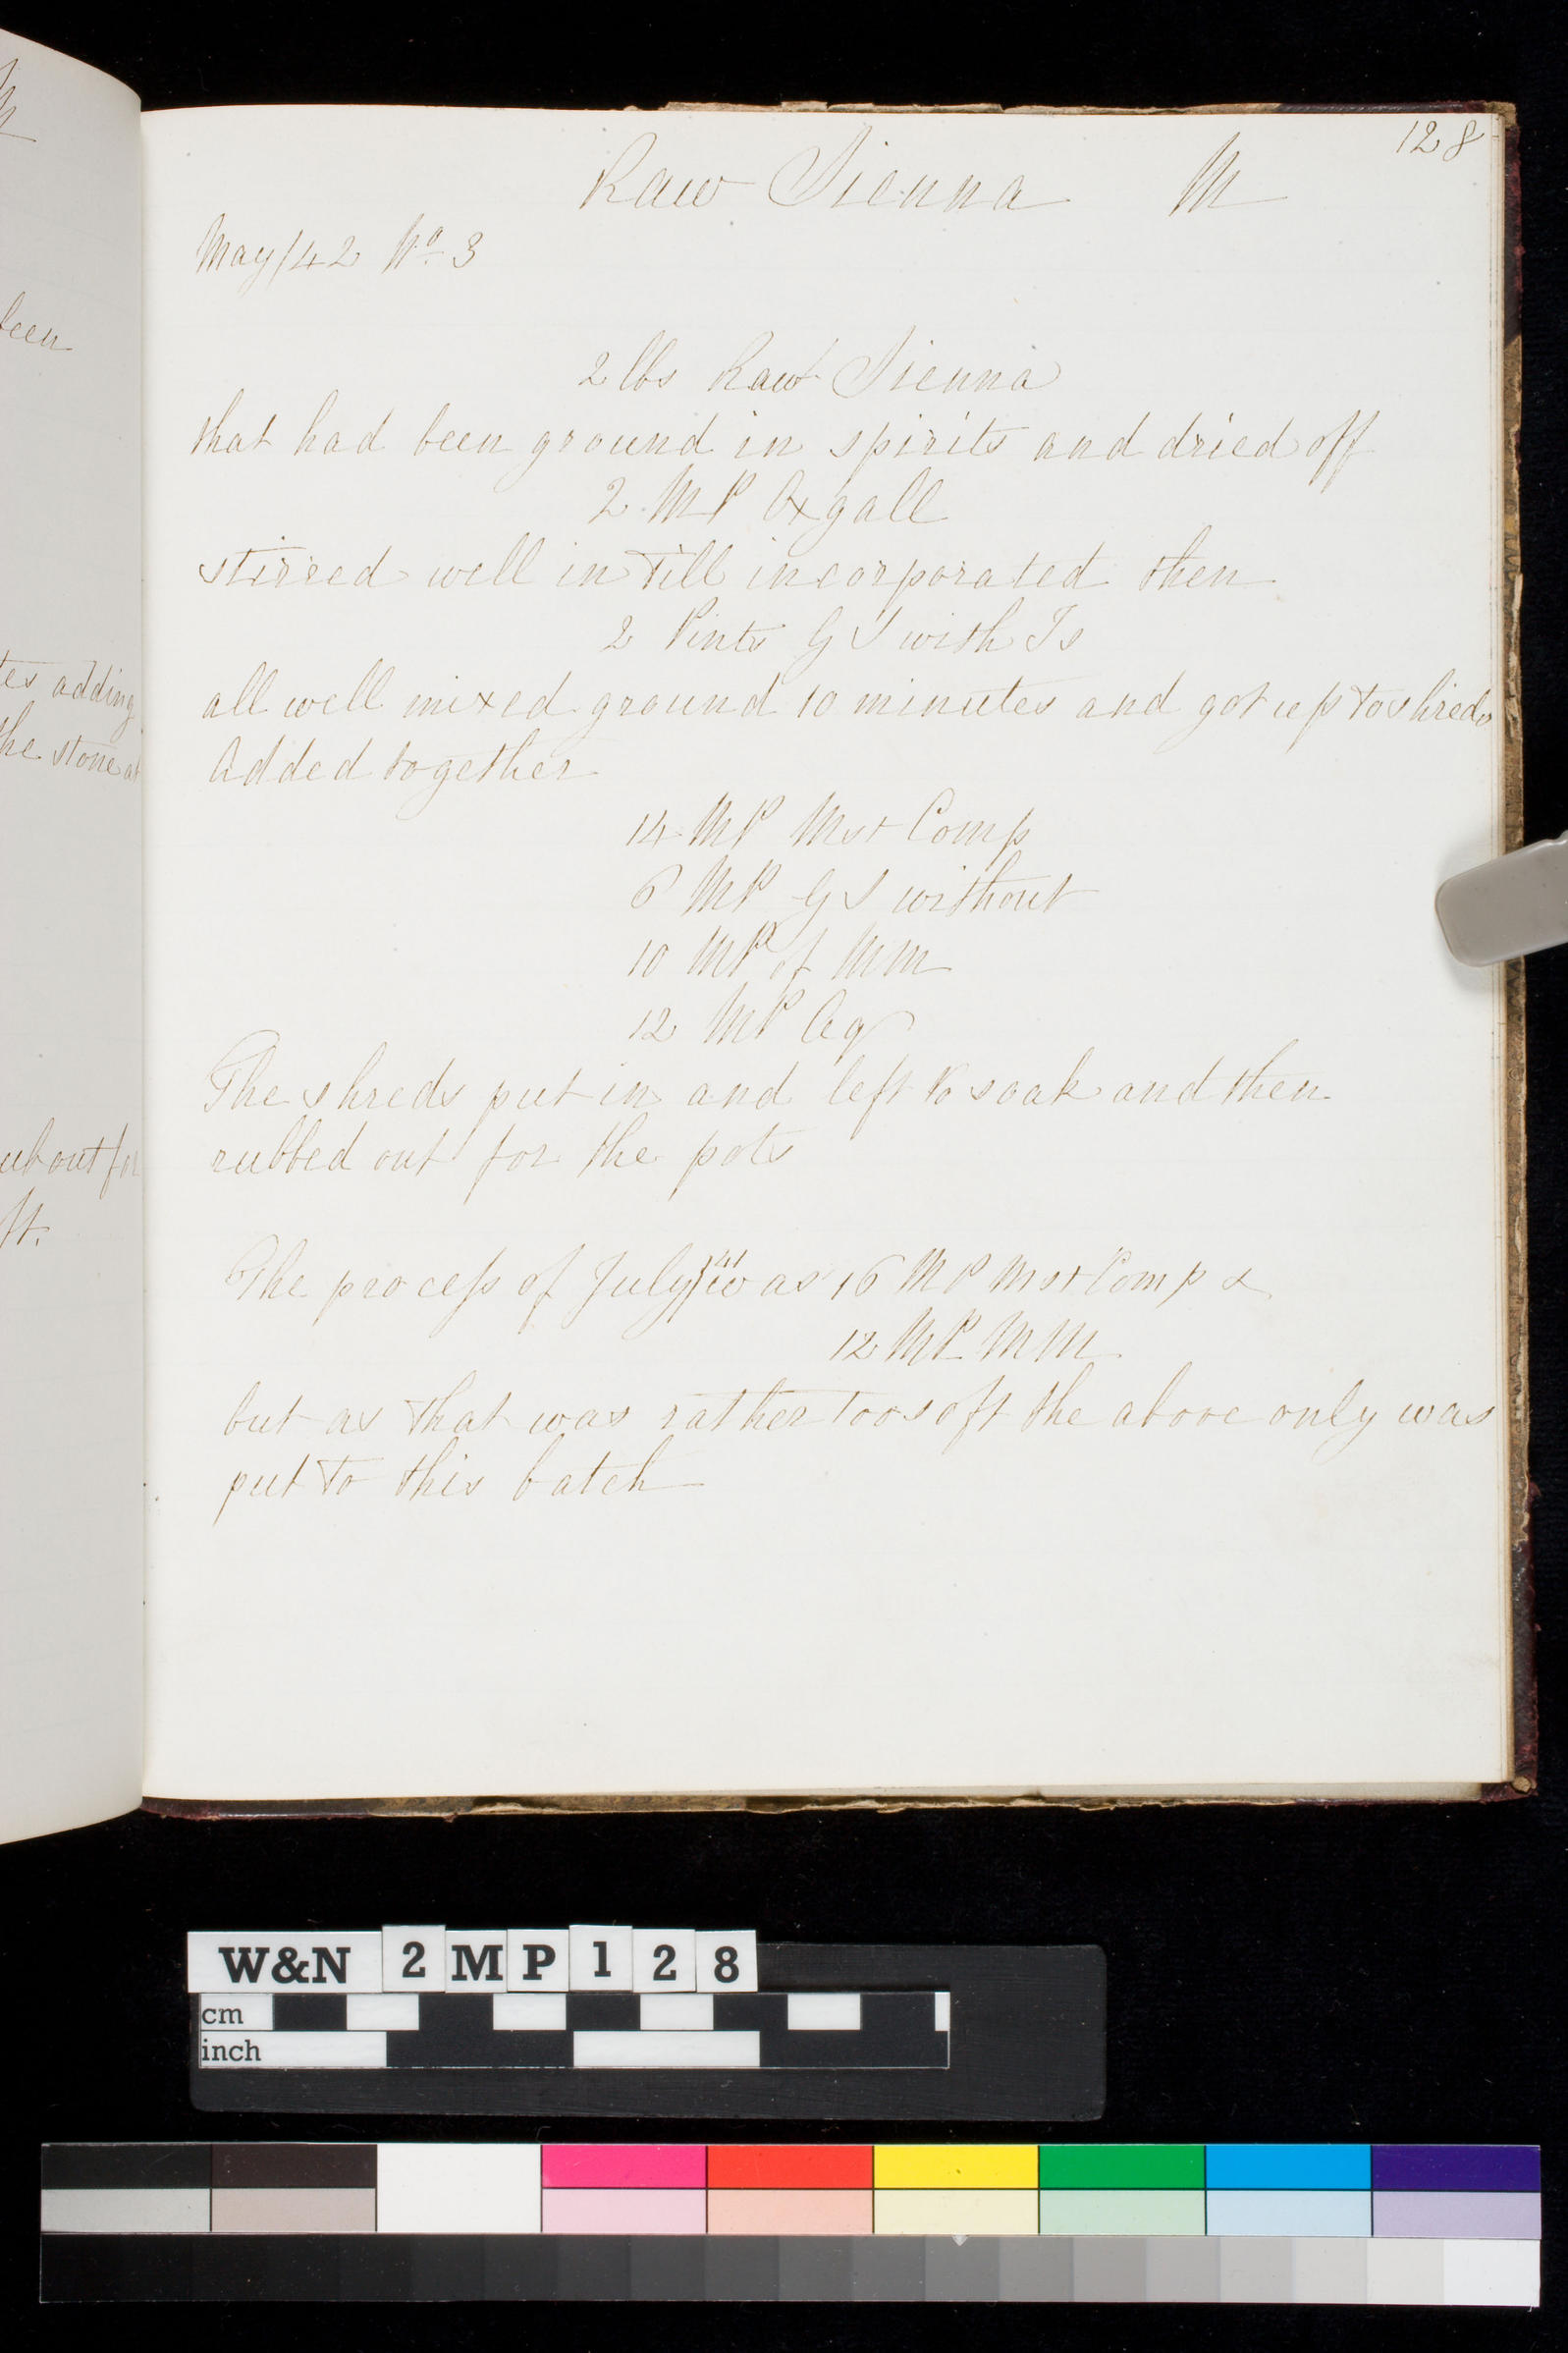 128
Raw Sienna M
May/42 No. 3
2 lbs Raw Sienna
that had been ground in spirits and dried off
2 MP Oxgall
stirred well in till incorporated then
2 Pints GS with Is
all well mixed ground 10 minutes and got up to shreds
Added together
14 MP Mst Comp
6 MP GS without
10 MP of MM
12 MP Aq
The shreds put in and left to soak and then
rubbed out for the pots
The process of July/41 was 16 MP Mst Comp &
12 MP MM
but as that was rather too soft the above only was
put to this batch
been
tes adding
the stone at
ub out for
ft.
W&N 2 M P 1 2 8
cm
inch